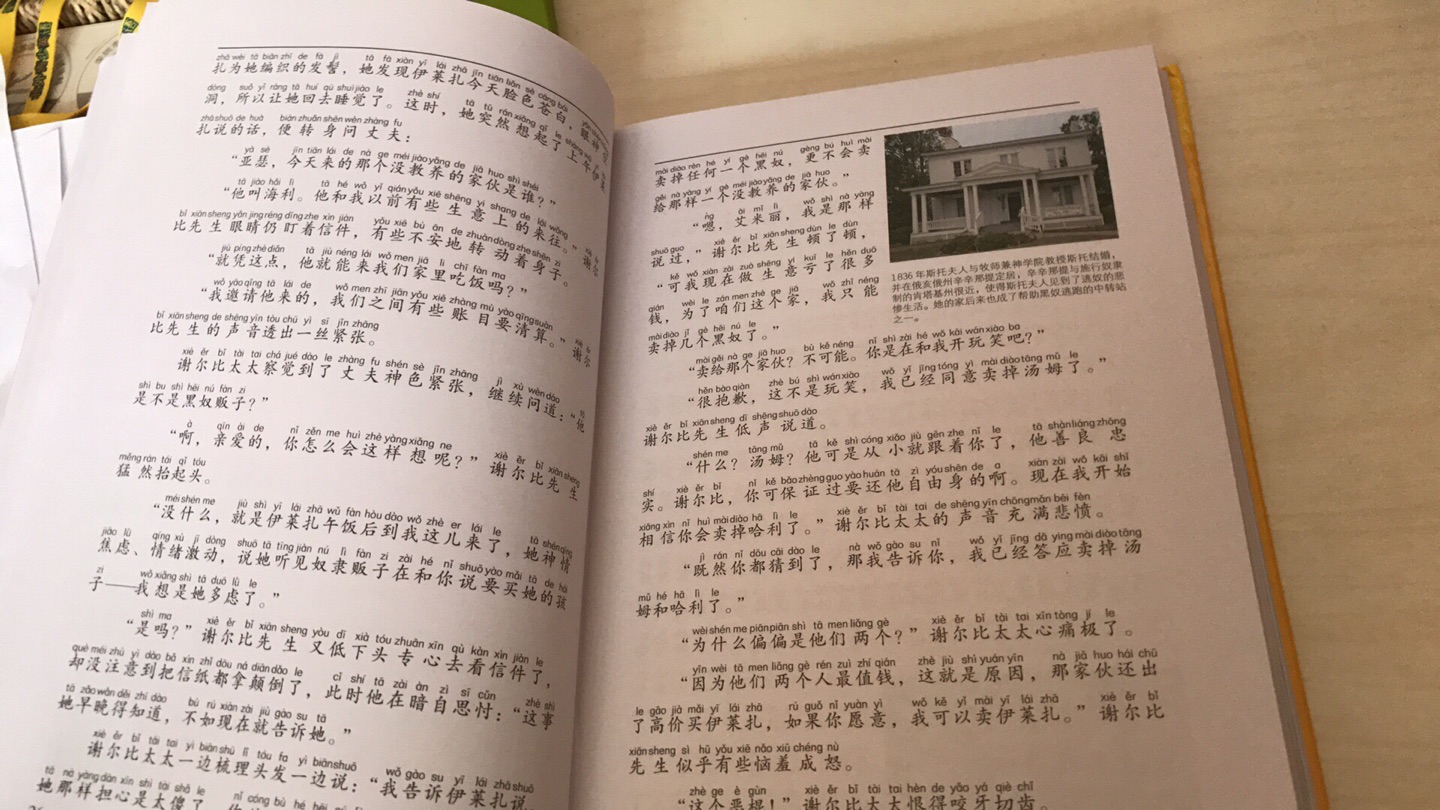 扎为她编织的发髻，她发现伊莱扎今天脸色苍白，眼神空
洞，所以让她回去睡觉了。这时，她突然想起了上午伊莱
扎说的话，便转身问丈夫：
“亚瑟，今天来的那个没教养的家伙是谁？”
“他叫海利。他和我以前有些生意上的来往。”谢尔
比先生眼睛仍盯着信件，有些不安地转动着身子。
“就凭这点，他就能来我们家里吃饭吗？”
“我邀请他来的，我们之间有些账目要清算。”谢尔
比先生的声音透出一丝紧张。
谢尔比太太察觉到了丈夫神色紧张，继续问道：“他
是不是黑奴贩子？”
“啊，亲爱的，你怎么会这样想呢？”谢尔比先生
猛然抬起头。
“没什么，就是伊莱扎午饭后到我这儿来了，她神情
焦虑、情绪激动，说她听见奴隶贩子在和你说要买她的孩
子——我想是她多虑了。”
“是吗？”谢尔比先生又低下头专心去看信件了，
却没注意到把信纸都拿颠倒了，此时他在暗自思忖：“这事
她早晚得知道，不如现在就告诉她。”
谢尔比太太一边梳理头发一边说：“我告诉伊莱扎说，
她那样担心是太傻了
卖掉任何一个黑奴，更不会卖
给那样一个没教养的家伙。”
“嗯，艾米丽，我是那样
说过，”谢尔比先生顿了顿，
“可我现在做生意亏了很多
钱，为了咱们这个家，我只能
卖掉几个黑奴了。”
1836年斯托夫人与牧师兼神学院教授斯托结婚，
并在俄亥俄州辛辛那提定居，辛辛那提与施行奴隶
制的肯塔基州很近，使得斯托夫人见到了逃奴的悲
惨生活。她的家后来也成了帮助黑奴逃跑的中转站
之一。
“卖给那个家伙？不可能。你是在和我开玩笑吧？”
“很抱歉，这不是玩笑，我已经同意卖掉汤姆了。”
谢尔比先生低声说道。
“什么？汤姆？他可是从小就跟着你了，他善良忠
实。谢尔比，你可保证过要还他自由身的啊。现在我开始
相信你会卖掉哈利了。”谢尔比太太的声音充满悲愤。
“既然你都猜到了，那我告诉你，我已经答应卖掉汤
姆和哈利了。”
“为什么偏偏是他们两个？”谢尔比太太心痛极了。
“因为他们两个人最值钱，这就是原因，那家伙还出
了高价买伊莱扎，如果你愿意，我可以卖伊莱扎。”谢尔比
先生似乎有些恼羞成怒。
“这个恶棍！”谢尔比太太恨得咬牙切齿。